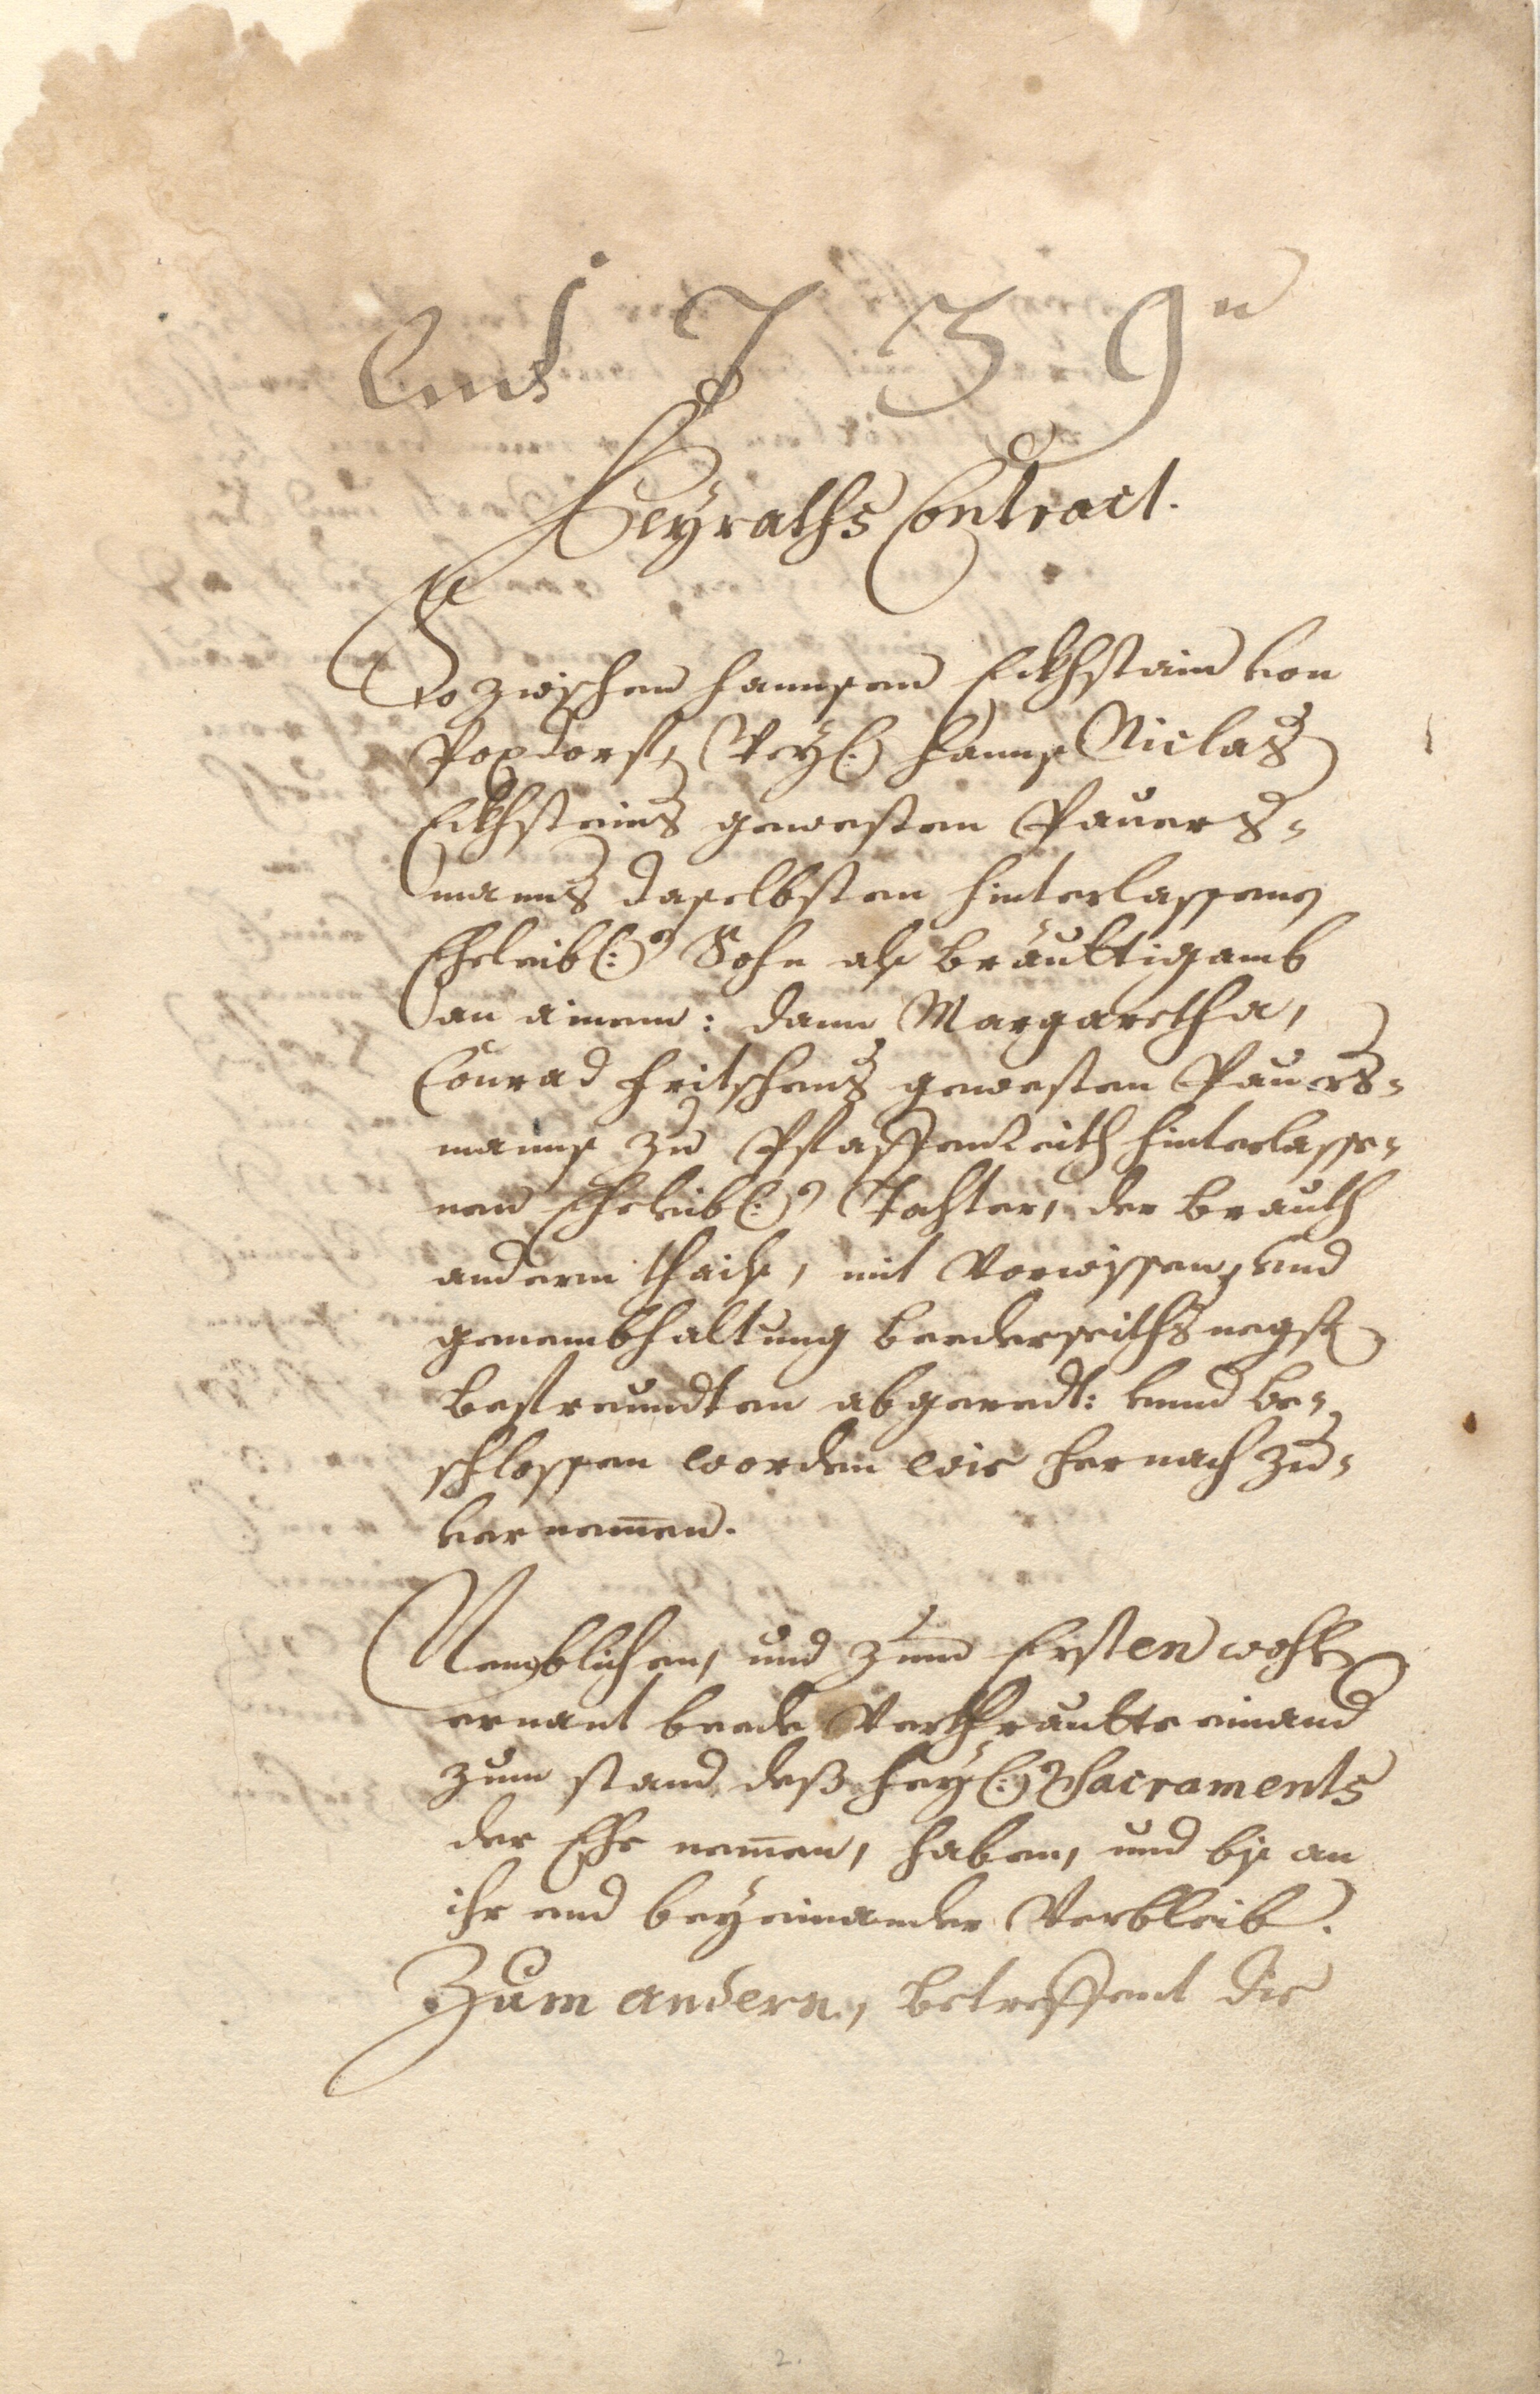 1739
Heyraths Contract.
So zwischen Hannsen Eckhstain von
Popdorf, Wey(l:) Hannß Niclaß
Eckhsteins gewesten Pauers-
manns daselbsten hinterlassene
Eheleib(l:) Sohn alß Bräuttigamb
an ainem: dann Margaretha,
Conrad Fritschens gewesten Pauers-
manns zu Pfaffenreith hinterlasse-
nen Eheleib(l:) Tochter, der Brauth
andern thails, mit Vorwissen, und
genembhaltung beederseiths negst
befreundten abgeredt: unnd be-
schlossen worden wie hernach zu-
vernem̄en.
Nemblichen, und zum Ersten wohl
ernant beede Verthrautte einand
zum stand deß Hey(l:) Sacraments
der Ehe nem̄en, haben, und biß an
ihr end beyeinander Verbleib.
Zum andern, betreffent die
2.